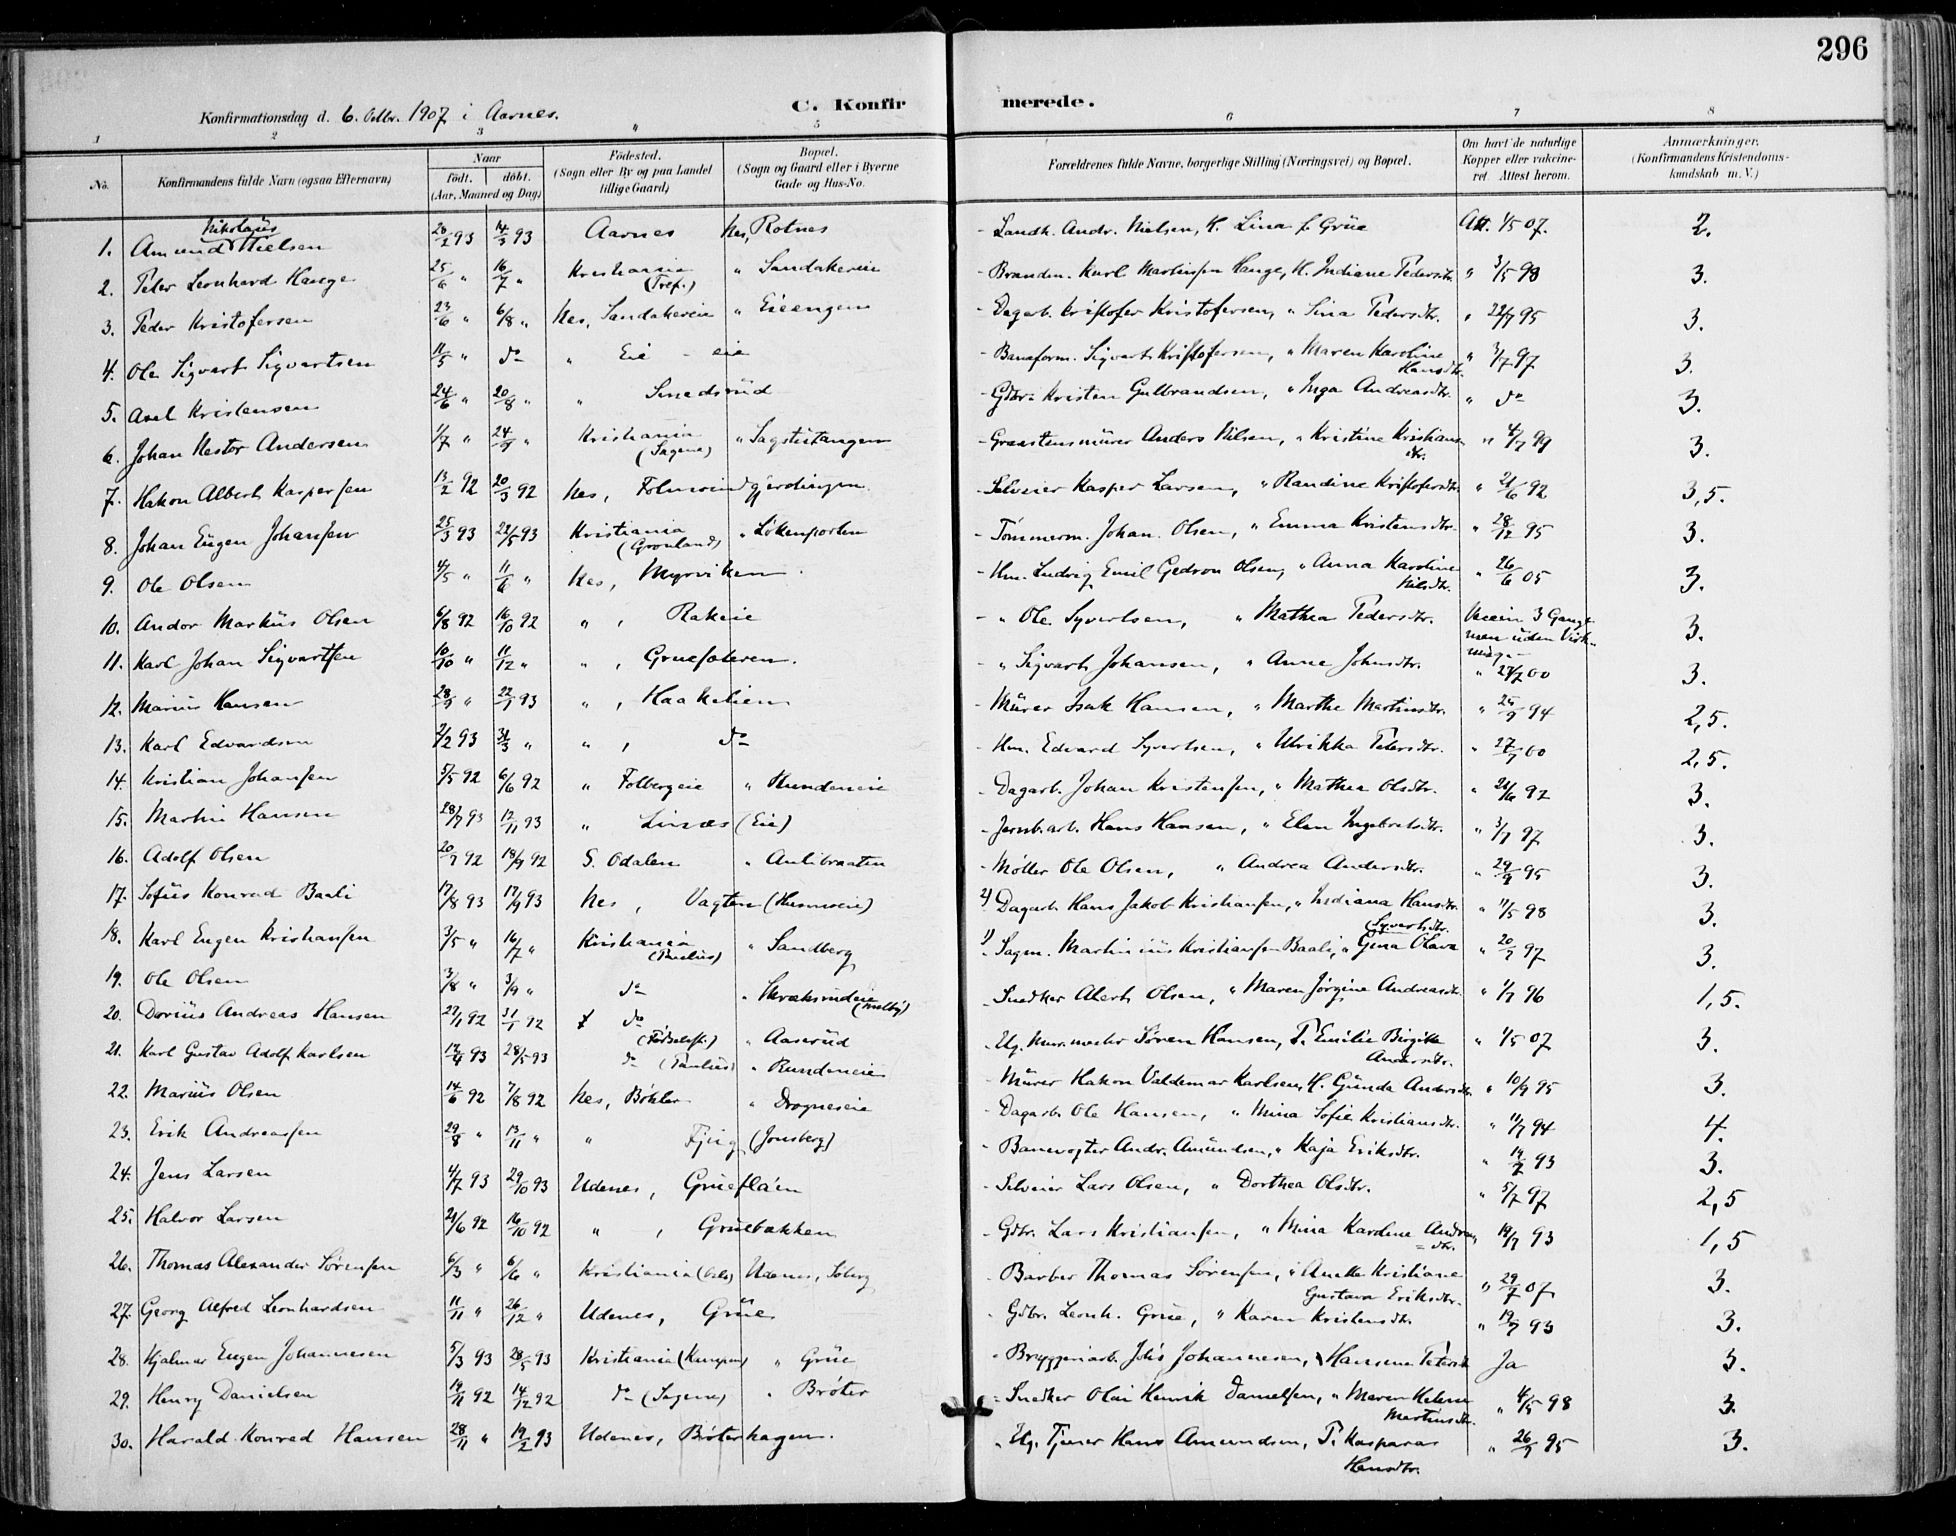 296
C. Konfirmerede.
Konfirmationsdag d. 6. Oktbr. 1907 i Aarnes.
1 2 3 " 5 6 7 8
No. Konfirmandens fulde Navn (ogsaa Efternavn) Naar født. døbt. (Aar, Maaned og Dag) Fødested. (Sogn eller By og paa Landet tillige Gaard) Bopæl. (Sogn og Gaard eller i Byerne Gade og Hus-No. Forældrenes fulde Navne, borgerlige Stilling (Næringsvei) og Bopæl. Om havt de naturlige Kopper eller vakcineret. Attest herom. Anmærkninger. (Konfirmandens Kristendomskundskab m. V.)
1. Amund Nikolaus Nielsen 26/2 93 14/3 93 Aarnes Nes, Rotnes - Landh. Andr. Nielsen, H. Lina f. Grüe Att. 1/5 07. 2.
2. Peter Leonhard Hauge 25/6 " 16/7 " Kristiania (Tref.) " Sandakereie - Brandm. Karl Martinsen Hauge, H. Indiane Pedersdtr. " 3/5 98 3.
3. Peder Kristofersen 23/6 " 6/8 " Nes, Sandakereie " Eieengen - Dagarb. Kristofer Kristofersen, " Lina Pedersdtr. " 22/7 95 3.
4. Ole Sigvart Sigvartsen 11/5 " do " Eie - eie - Baneform. Sigvart Kristofersen, " Maren Karoline Hansdtr. " 3/7 97 3.
5. Axel Kristensen 24/6 " 20/8 " " Smedsrüd - Gdbr. Kristen Gulbrandsen, " Inga Andreasdtr. " do 3.
6. Johan Nestor Andersen 1/7 " 24/9 " Kristiania (Sagene) " Sagstütangen - Graastensmürer Anders Nilsen, " Kristine Kristiansdtr. " 4/7 99 3.
7. Hakon Albert Kaspersen 13/2 92 20/3 92 Nes, Folmoindgjerdingen - Selveier Kasper Larsen, " Randine Kristofersdtr. " 21/6 92 3,5.
8. Johan Eugen Johansen 25/3 93 22/5 93 Kristiania (Grønland) " Løkenporten - Tømmerm. Johan Olsen, " Emma Kristensdtr. " 28/12 95 3.
9. Ole Olsen 4/5 " 11/6 " Nes, Myrviken - Hm. Ludvig Emil Gedron Olsen, " Anna Karoline Nilsdtr. " 26/6 05 3.
10. Andor Markus Olsen 6/8 92 16/10 92 " , Rakeie - " Ole Syvertsen, " Mathea Pedersdtr. Vaccin 3 Gange men uden Virkning 3.
11. Karl Johan Sigvartsen 10/10 " 11/12 " " , Gruesæteren. - " Sigvart Johansen, " Anne Johnsdtr. " 27/7 00 3.
12. Marius Hansen 28/9 " 22/1 93 " , Haakelien - Mürer Isak Hansen, " Marthe Martinsdtr. " 25/9 94 2,5.
13. Karl Edvardsen 2/2 93 31/3 " " , do - Hm. Edvard Syvertsen, " Ulrikka Petersdtr. " 27/7 00 2,5.
14. Kristian Johansen 5/5 92 6/6 92 " Folbergeie " Rundeneie - Dagarb. Johan Kristensen, " Mathea Olsdtr. " 21/6 92 3.
15. Martin Hansen 28/7 93 12/11 93 " Linæs (Eie) - Jernb.arb. Hans Hansen, " Elen Ingebretsdtr. " 3/7 97 3.
16. Adolf Olsen 20/7 92 18/9 92 S. Odalen " Antibraaten - Møller Ole Olsen, " Andrea Andersdtr. " 29/9 95 3.
17. Sofus Konrad Baali 17/8 93 17/9 93 Nes, Vagten (Husmoeie) 2) Dagarb. Hans Jakob Kristiansen, " Indiana Hansdtr. " 11/5 98 3.
18. Karl Eugen Kristiansen 3/5 " 16/7 " Kristiania (Paulus) " Sandberg 1) Sagm. Martinius Kristiansen Baali, " Gina Olava Syvertsdtr. " 20/7 97 3.
19. Ole Olsen 3/8 " 3/9 " do " Skræksrudeie (Melby) - Snedker Alert Olsen, " Maren Jørgine Andreasdtr. " 1/7 96 1,5.
20. Dorius Andreas Hansen 27/1 92 31/1 92 do (Fødselsst.) " Aaserüd - Ug. Mur.mester Søren Hansen, P. Emilie Birgitte Andersdtr. " 1/5 07 3.
21. Karl Gustav Adolf Karlsen 12/4 93 28/5 93 do (Paulus) " Rundeneie - Mürer Hakon Valdemar Karlsen, H. Gunda Andersdtr. " 10/9 95 3.
22. Marius Olsen 14/6 92 7/8 92 Nes, Bøhler " Drogneseie - Dagarb. Ole Hansen, " Mina Sofie Kristiansdtr. " 11/7 94 4.
23. Erik Andreassen 29/8 " 13/11 " " Fjeig (Jonsberg) - Banevogter Andr. Amundsen, " Kaja Eriksdtr. " 19/7 93 3.
24. Jens Larsen 4/7 93 29/10 93 Udenes, Grueflåen - Selveier Lars Olsen, " Dorthea Olsdtr. " 5/7 97 2,5
25. Halvor Larsen 21/6 92 16/10 92 " , Gruebakken - Gdbr. Lars Kristiansen, " Mina Karoline Andreasdtr. 19/7 93 1,5
26. Thomas Alexander Sørensen 6/3 " 6/6 " Kristiania (Oslo) Udenes, Søberg - Barber Thomas Sørensen, " Anette Kristiane Gustava Eriksdtr. " 29/7 07 3.
27. Georg Alfred Leonhardsen 11/11 " 26/12 " Udenes, Grüe - Gdbr. Leonh. Grüe, " Karen Kristensdtr. " 19/7 93 3.
28. Hjalmar Eugen Johannesen 5/3 93 28/5 93 Kristiania (Kampen) " Grüe - Bryggeriarb. Johs Johannesen, " Hansine Petersdtr. Ja 3.
29. Henry Danielsen 19/11 92 14/12 92 do (Sagene) " Brøter - Snedker Olai Henrik Danielsen, " Maren Helene Martinsdtr. " 4/5 98 3.
30. Harald Konrad Hansen 28/11 " 19/2 93 Udenes, Brøterhagen. - Ug. Tjener Hans Amundsen, P. Kaspara Hansdtr. " 26/7 95 3.